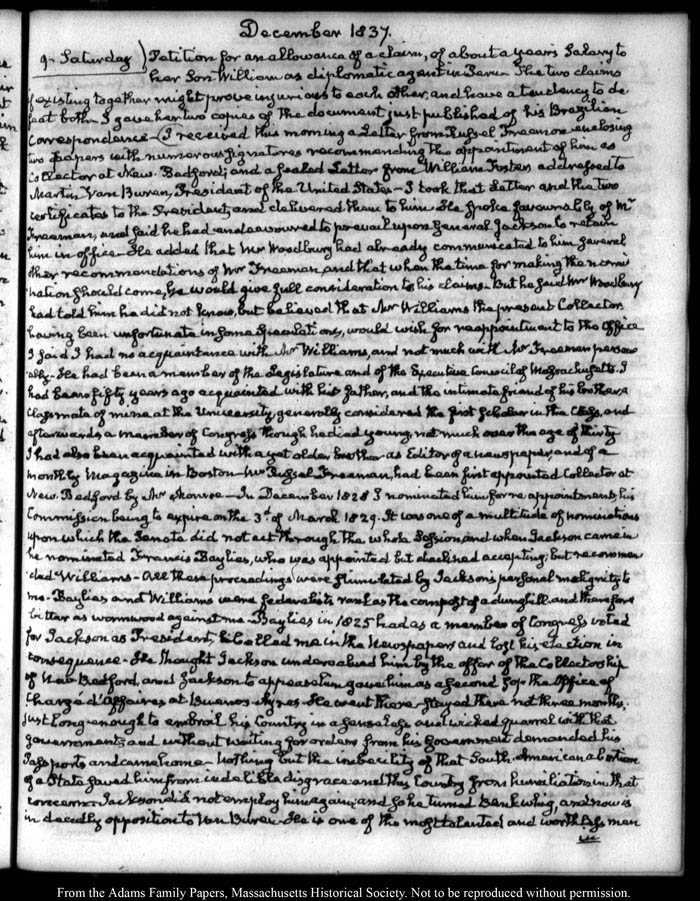 December 1837.
9. Saturday) Petition for an allowance of a claim, of about a years Salary to
her Son William as diplomatic agent in Peru. The two claims
existing together might prove injurious to each other, and have a tendency to de
feat both. I gave her two copies of the document just published of his Brazilian
Correspondence. I received this morning a Letter from Russel Freeman enclosing
two papers with numerous signatures recommending the appointment of him as
Collector at New-Bedford; and a sealed Letter from William Foster addressed to
Martin Van Buren, President of the United States—I took that Letter and the two
certificates to the President, and delivered them to him. He spoke favourably of Mr
Freeman, and said he had endeavoured to prevail upon General Jackson to retain
him in office. He added that Mr Woodbury had already communicated to him several
other recommendations of Mr Freeman, and that when the time for making the nomi
nation should come, he would give full consideration to his claims. But he said Mr Woodbury
had told him he did not know, but believed that Mr Williams the present Collector
having been unfortunate in some speculations, would wish for reappointment to the Office
I said I had no acquaintance with Mr Williams, and not much with Mr Freeman person
ally. He had been a member of the Legislature and of the Executive Council of Massachusetts. I
had been fifty years ago acquainted with his father, and the intimate friend of his brother, a
Classmate of mine at the University, generally considered the first scholar in the Class, and
afterwards a member of Congress though he died young, not much over the age of thirty
I had also been acquainted with a yet older brother as Editor of a newspaper, and of a
monthly Magazine in Boston. Mr Russel Freeman, had been first appointed Collector at
New-Bedford by Mr Monroe—In December 1828 I nominated him for re-appointment, his
Commission being to expire on the 3d of March 1829. It was one of a multitude of nominations
upon which the Senate did not act through the whole Session, and when Jackson came in
he nominated Francis Baylies, who was appointed but declined accepting, but recommen
ded Williams—All these proceedings were stimulated by Jackson's personal malignity to
me. Baylies and Williams were federalists rank as the compost of a dunghill and therefore
bitter as wormwood against me. Baylies in 1825 had as a member of Congress voted
for Jackson as President, libelled me in the Newspapers and lost his election in
consequence. He thought Jackson undervalued him by the offer of the Collectorship
of New-Bedford, and Jackson to appease him gave him as a second sop the Office of
Chargé d'Affaires at Buenos-Ayres. He went there, stayed there not three months,
just long enough to embroil his Country in a senseless and wicked quarrel with that
Government; and without waiting for orders from his Government demanded his
Passports and came home. Nothing but the imbecility of that South American abortion
of a State saved him from indelible disgrace and this Country from humiliation in that
concern. Jackson did not employ him again, and so he turned Bank whig, and now is
in deadly opposition to Van Buren. He is one of the most talented and worthless men
in
From the Adams Family Papers, Massachusetts Historical Society. Not to be reproduced without permission.